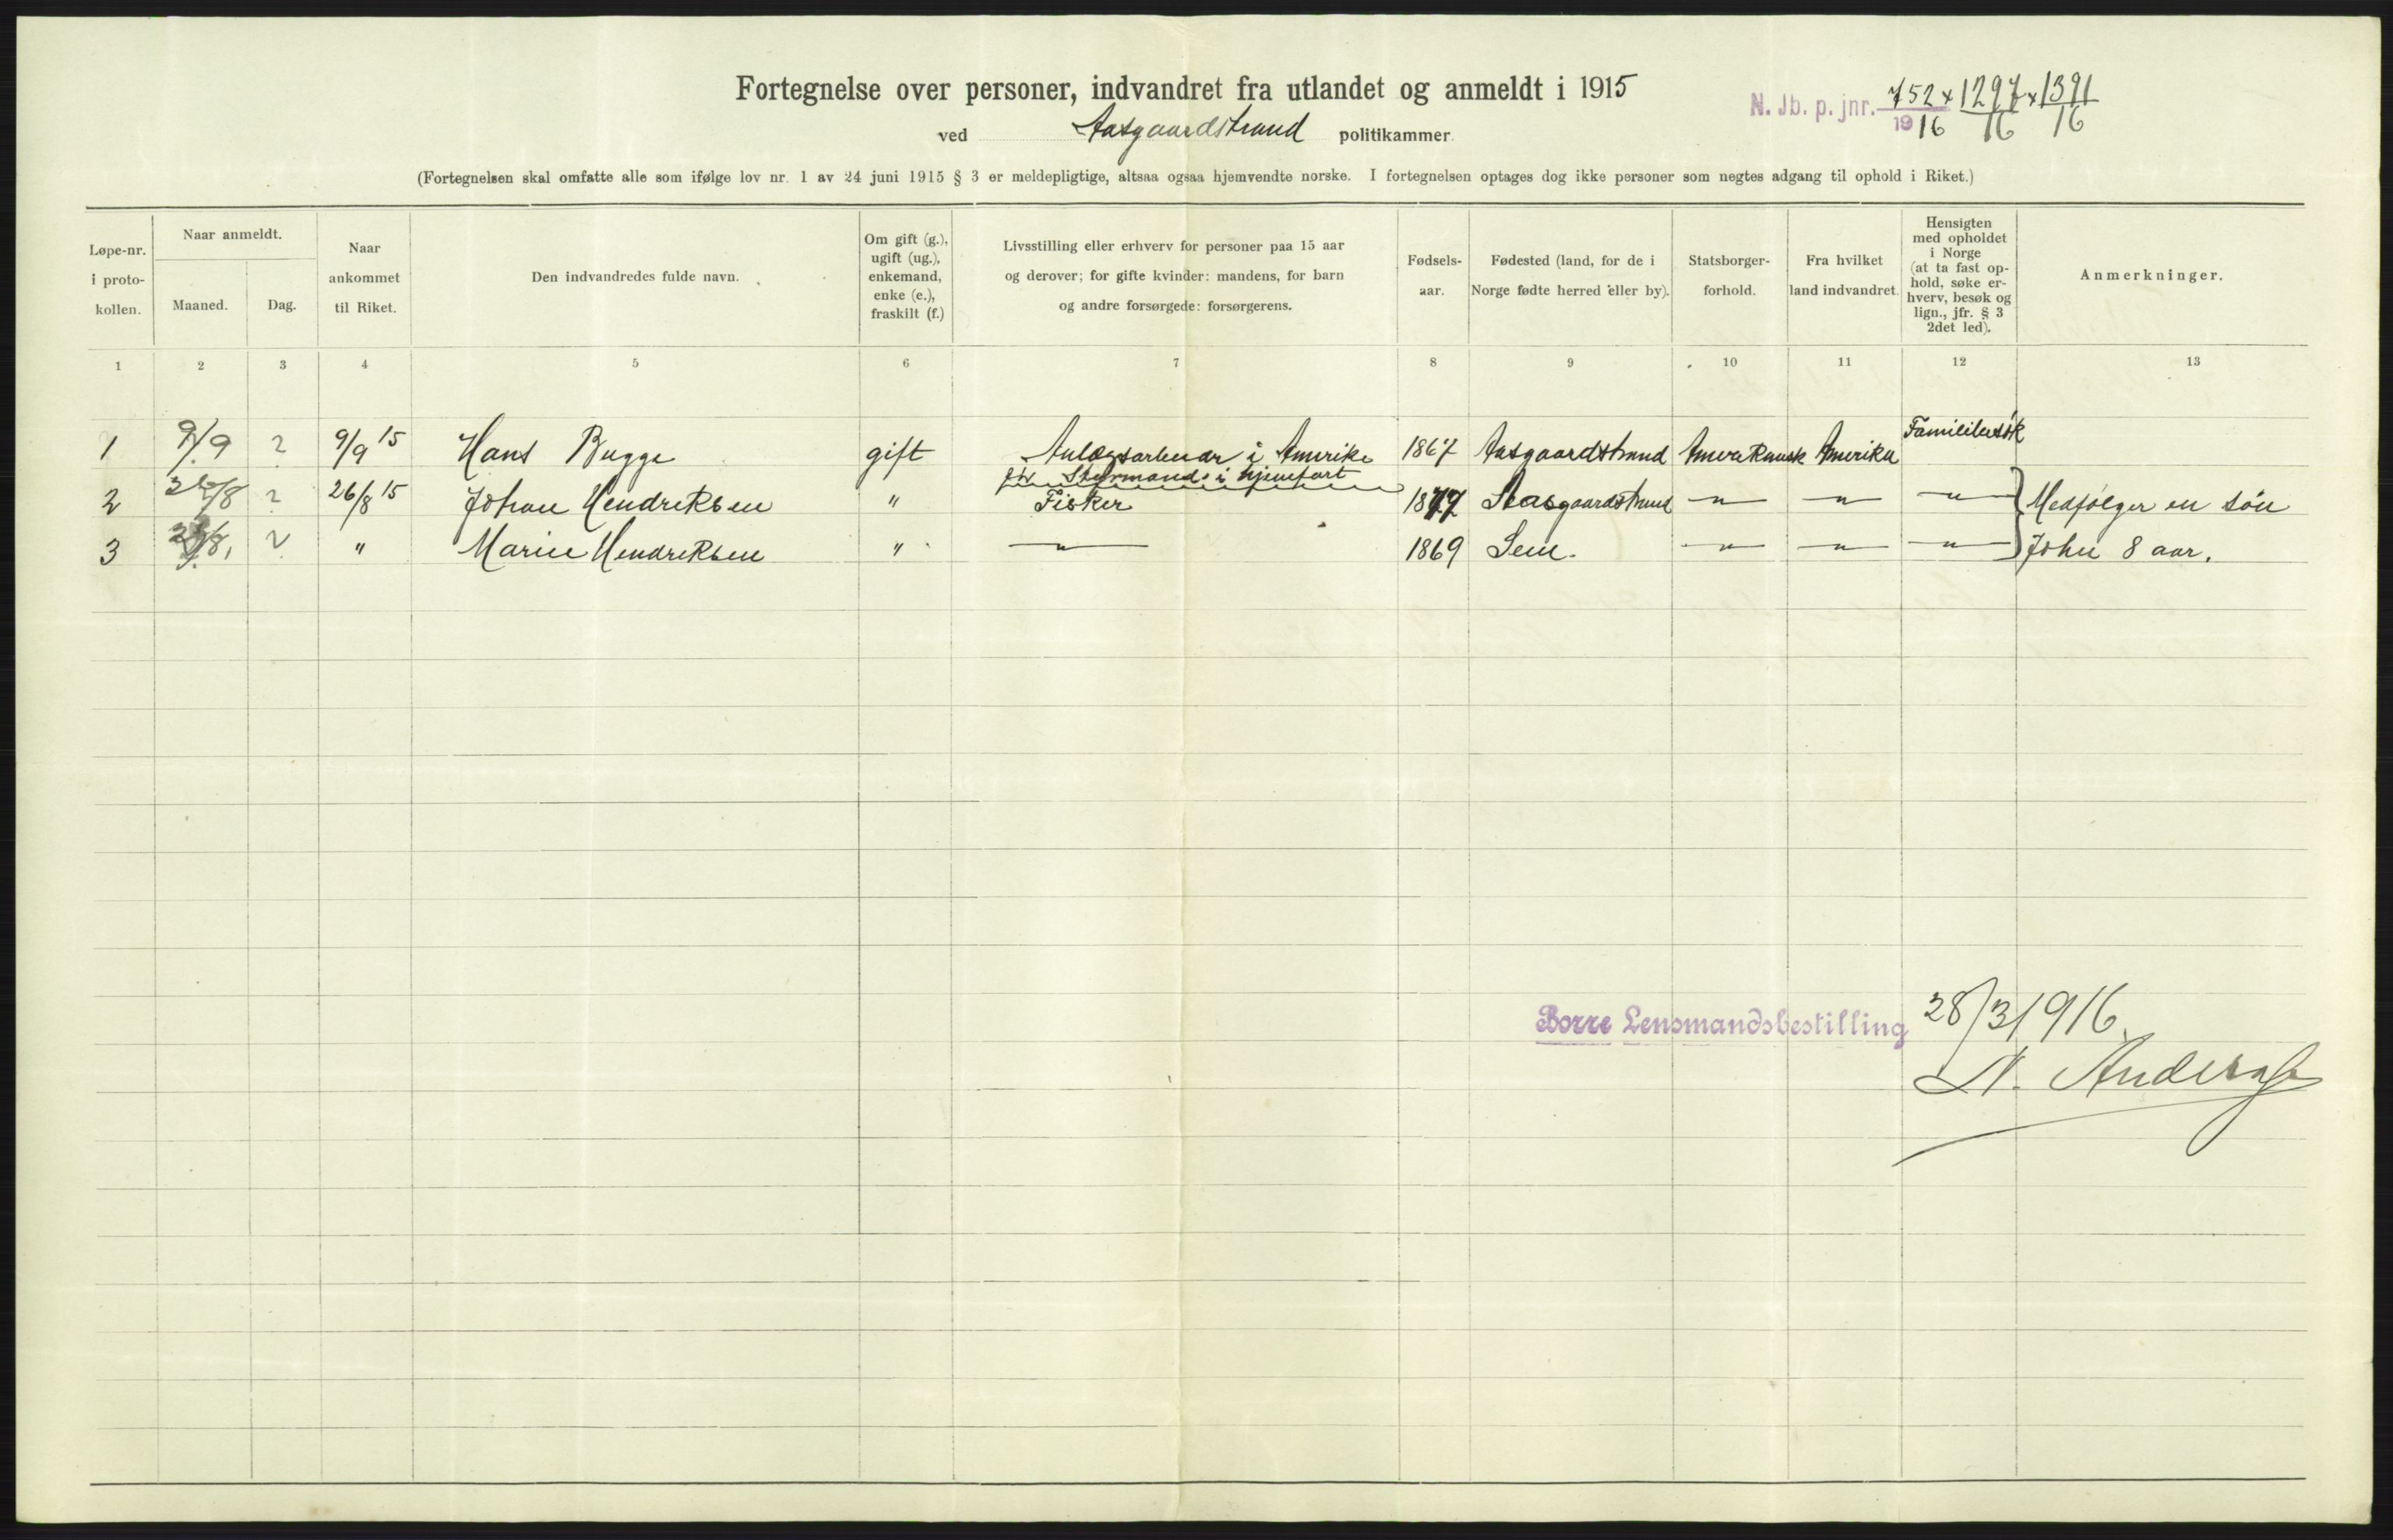 Fortegnelse over personer, indvandret fra utlandet og anmeldt i 1915
ved Aasgaardstrand politikammer
N. Jb. p. jnr. 752/1916 x 1297/16 x 1391/16
(Fortegnelsen skal omfatte alle som ifølge lov nr. 1 av 24 juni 1915 § 3 er meldepligtige, altsaa ogsaa hjemvendte norske. I fortegnelsen optages dog ikke personer som negtes adgang til ophold i Riket.)
Løpe-nr. i proto-kollen.
Naar anmeldt.
Maaned.
Dag.
Naar ankommet til Riket.
Den indvandredes fulde navn.
Om gift (g.), ugift (ug.), enkemand, enke (e.), fraskilt (f.)
Livsstilling eller erhverv for personer paa 15 aar
og derover; for gifte kvinder: mandens, for barn
og andre forsørgede: forsørgerens.
Fødsels-aar.
Fødested (land, for de i
Norge fødte herred eller by).
Statsborger-forhold.
Fra hvilket land indvandret.
Hensigten
med opholdet
i Norge
(at ta fast op-
hold, søke er-
hverv, besøk og
lign., jfr. § 3
2det led).
Anmerkninger.
1 2 3 4 5 6 7 8 9 10 11 12 13
1 9/9 ? 9/9 15 Hans Bugge gift Anlægsarbeider i Amerika 1867 Aasgaardstrand Amerikansk Amerika Familiebesøk
Styrmand i hjemfart
2 /8 ? 26/8 15 Johan Hendriksen " Fisker 1877 Aasgaardstrand — " — — " — — " — Medfølger en søn
3 /8. ? " Marie Hendriksen " — " — 1869 Sem. — " — — " — — " — John 8 aar.
Borre Lensmandsbestilling 28/3 1916
N. Anders